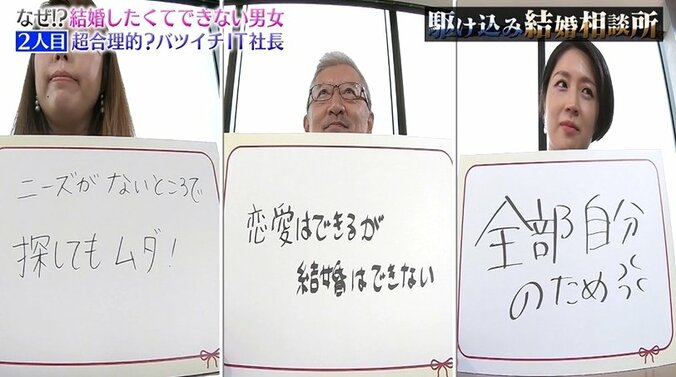 なぜ!?結婚したくてできない男女
2人目 超合理的?バツイチIT社長
駆け込み結婚相談所
ニーズがないところで
探してもムダ!
恋愛はできるが
結婚はできない
全部自分
のため